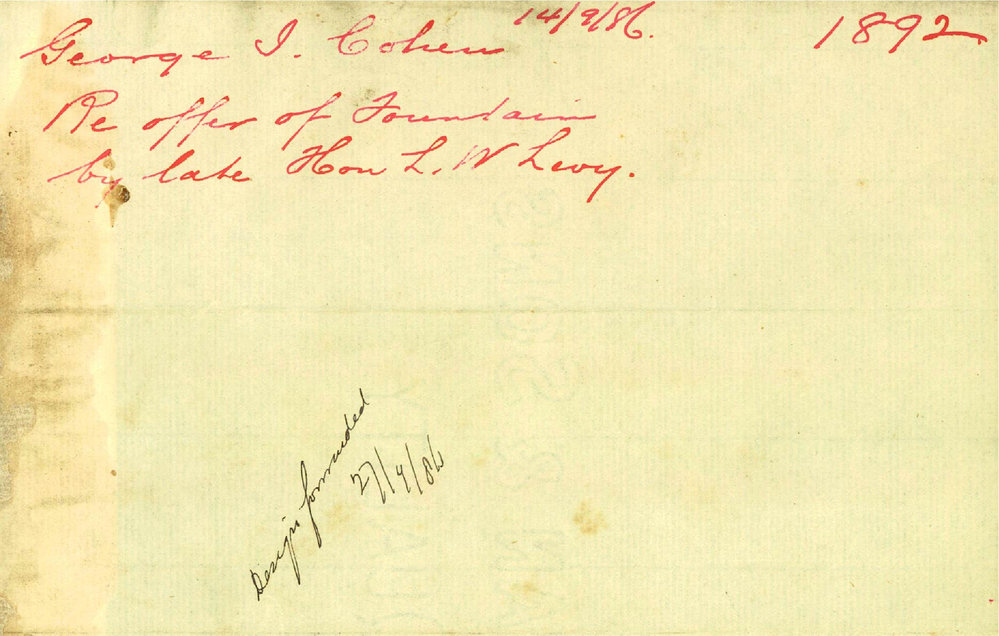 George I. Cohen 14/9/86. 1892
Re offer of Fountain
by late Hon L. W Levy.
Designs forwarded
27/9/86